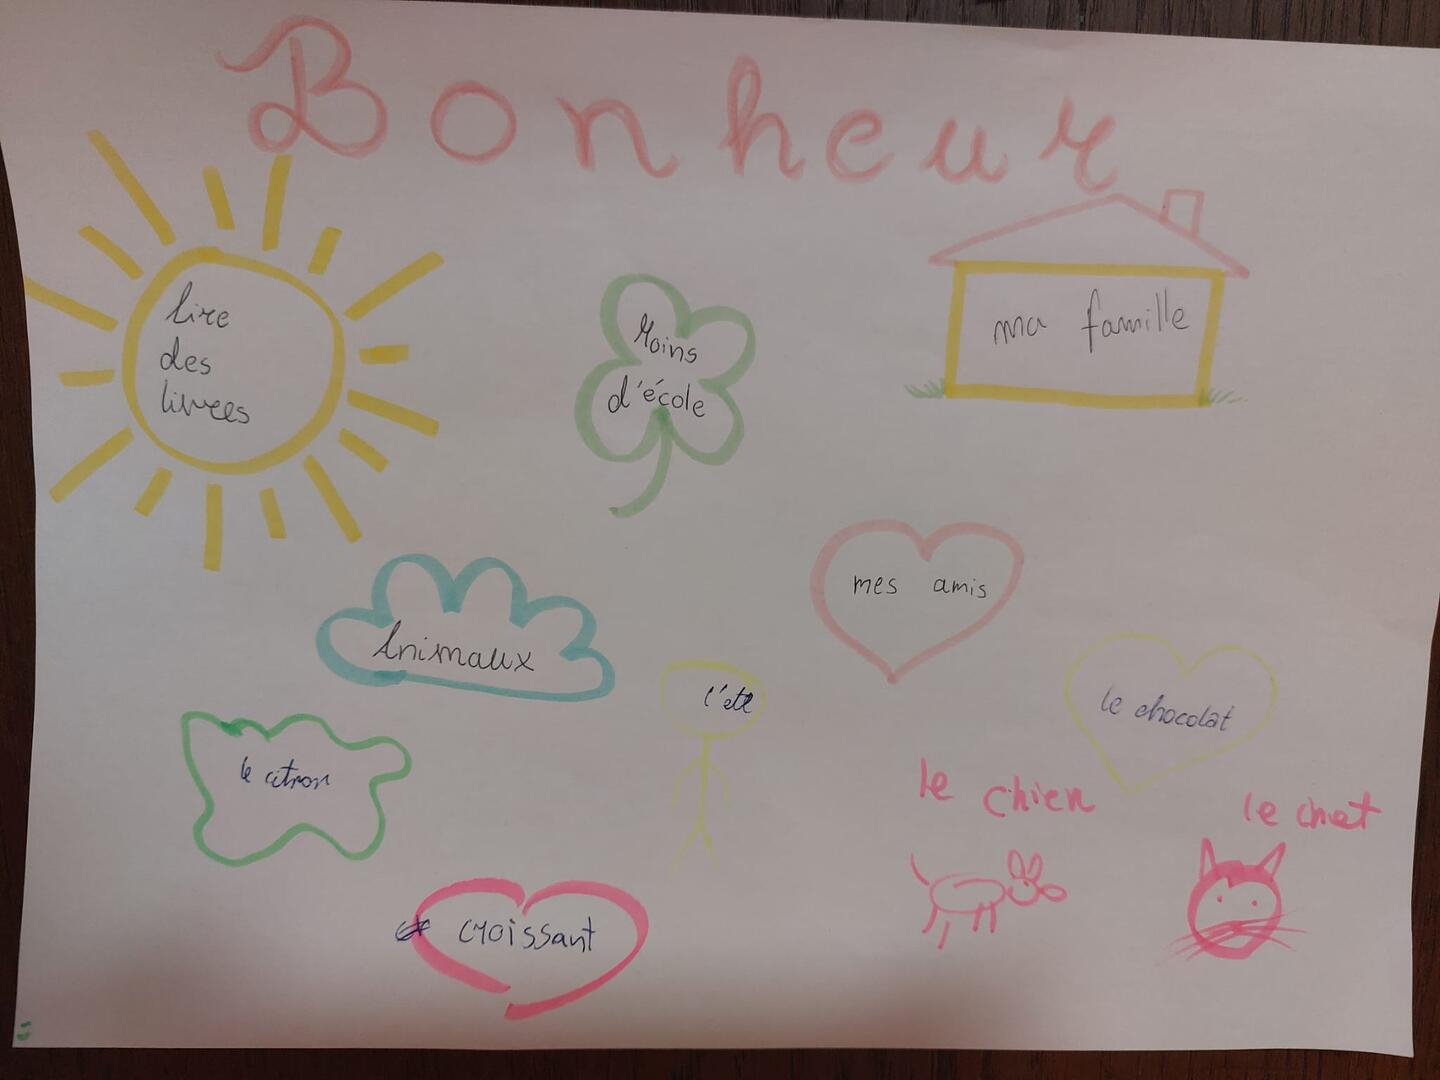 Bonheur
lire
des
livres
Moins
d'école
ma famille
mes amis
Animaux
l'été
le chocolat
le citron
le chien
le chat
croissant